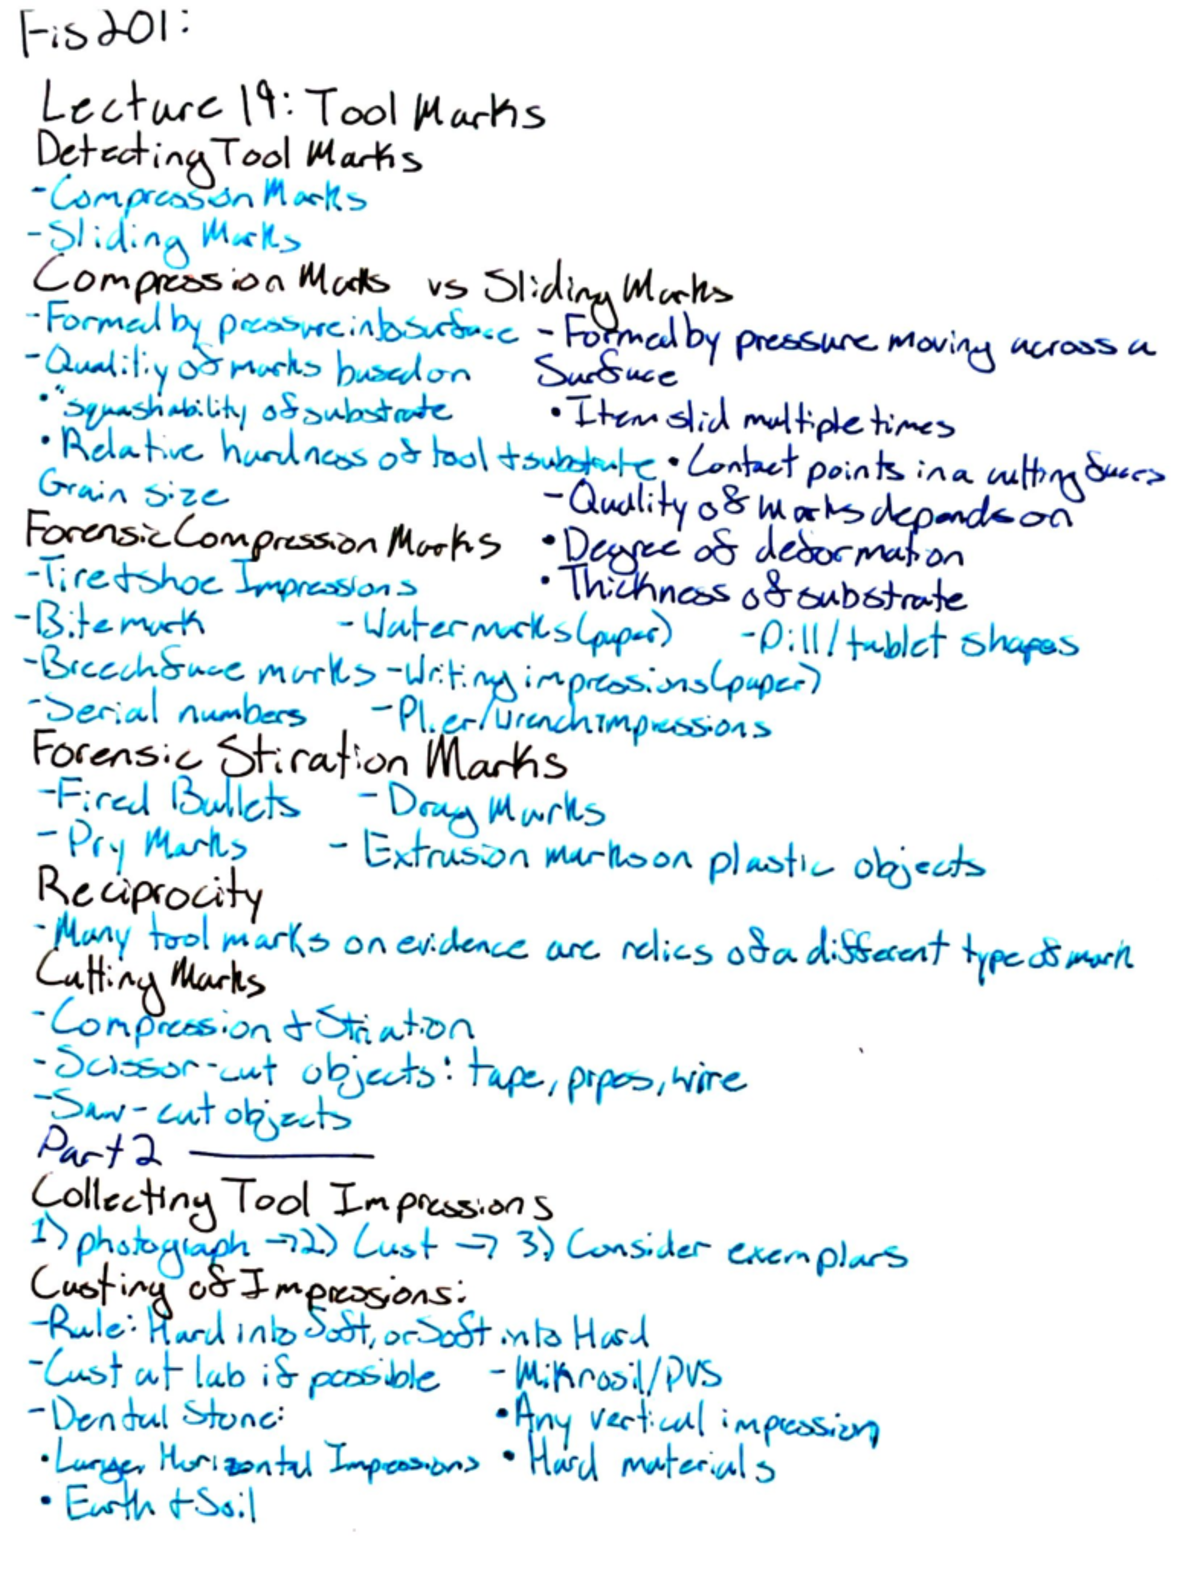 Fis201:
Lecture 19: Tool Marks
Detecting Tool Marks
-Compression Marks
-Sliding Marks
Compression Marks vs Sliding Marks
-Formed by pressure into surface
-Quality of marks based on
•"squashability of substrate
•Relative hardness of tool + substrate
Grain size
-Formed by pressure moving across a
Surface
•Item slid multiple times
•Contact points in a cutting
-Quality of marks depends on
•Degree of deformation
•Thickness of substrate
Forensic Compression Marks
-Tire + shoe Impressions
-Bite mark -Water marks (paper) -Pill/tablet shapes
-Breech face marks -Writing impressions (paper)
-Serial numbers -Plier/Wrench impressions
Forensic Stiration Marks
-Fired Bullets -Drag Marks
-Pry Marks -Extrusion marks on plastic objects
Reciprocity
-Many tool marks on evidence are relics of a different type of mark
Cutting Marks
-Compression + Striation
-Scissor-cut objects: tape, pipes, wire
-Saw-cut objects
Part 2
Collecting Tool Impressions
1) photograph → 2) Cast → 3) Consider exemplars
Casting of Impressions:
-Rule: Hard into Soft, or Soft into Hard
-Cast at lab if possible
-Dental Stone:
•Larger Horizontal Impressions
•Earth + Soil
-Mikrosil/PVS
•Any vertical impression
•Hard materials